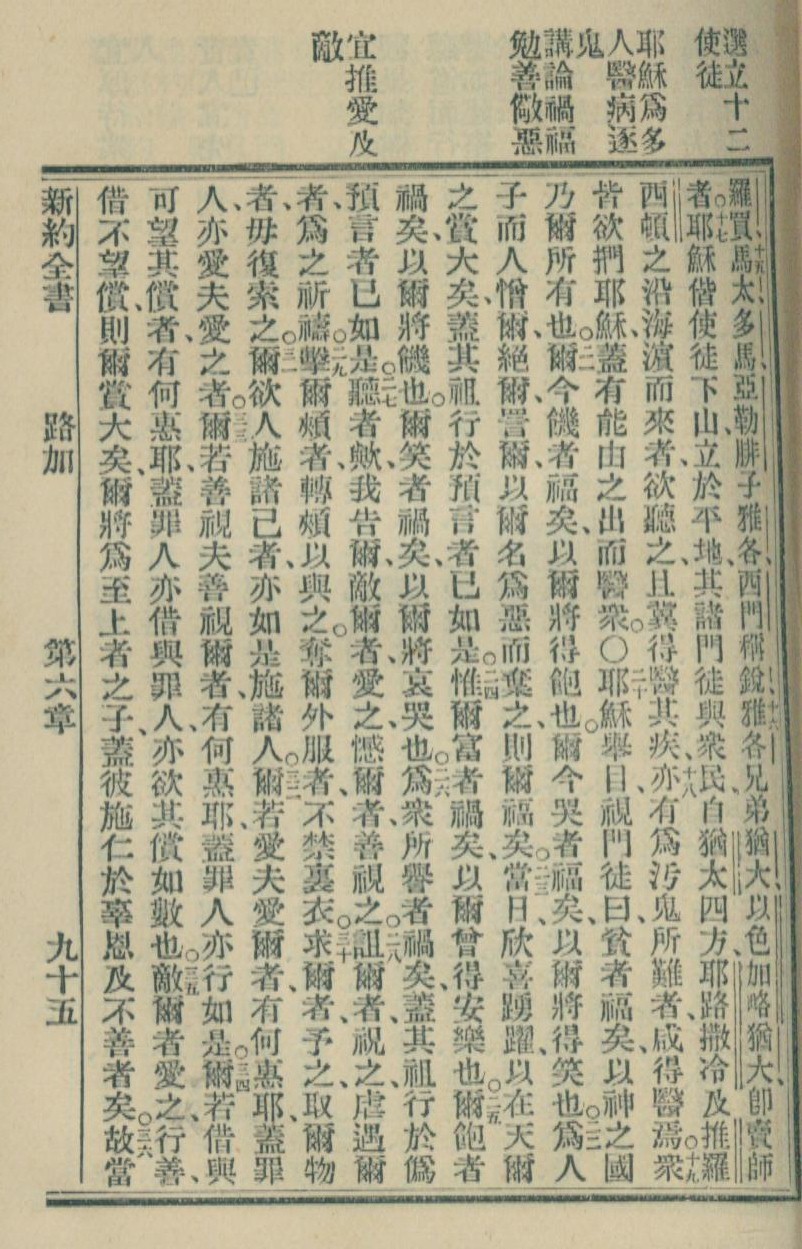 選立十二
使徒
耶穌爲多
人醫病逐
鬼
講論禍福
勉善儆惡
宜推愛及
敵
羅買馬太多馬亞勒腓子雅各西門稱銳雅各兄弟猶大以色加略猶大卽賣師
者耶穌偕使徒下山立於平地其諸門徒與衆民自猶太四方耶路撒冷及推羅
西頓之沿海濵而來者欲聽之且冀得醫其疾亦有爲汚鬼所難者咸得醫焉衆
皆欲捫耶穌蓋有能由之出而醫衆〇耶穌舉目視門徒曰貧者福矣以神之國
乃爾所有也爾今饑者福矣以爾將得飽也爾今哭者福矣以爾將得笑也爲人
子而人憎爾絕爾詈爾以爾名爲惡而棄之則爾福矣當日欣喜踴躍以在天爾
之賞大矣蓋其祖行於預言者已如是惟爾富者禍矣以爾曾得安樂也爾飽者
禍矣以爾將饑也爾笑者禍矣以爾將哀哭也爲衆所譽者禍矣蓋其祖行於僞
預言者已如是聽者歟我告爾敵爾者愛之憾爾者善視之詛爾者祝之虐遇爾
者爲之祈禱擊爾頰者轉頰以與之奪爾外服者不禁裏衣求爾者予之取爾物
者毋復索之爾欲人施諸己者亦如是施諸人爾若愛夫愛爾者有何惠耶蓋罪
人亦愛夫愛之者爾若善視夫善視爾者有何惠耶蓋罪人亦行如是爾若借與
可望其償者有何惠耶蓋罪人亦借與罪人亦欲其償如數也敵爾者愛之行善
借不望償則爾賞大矣爾將爲至上者之子蓋彼施仁於辜恩及不善者矣故當
新約全書 路加 第六章 九十五